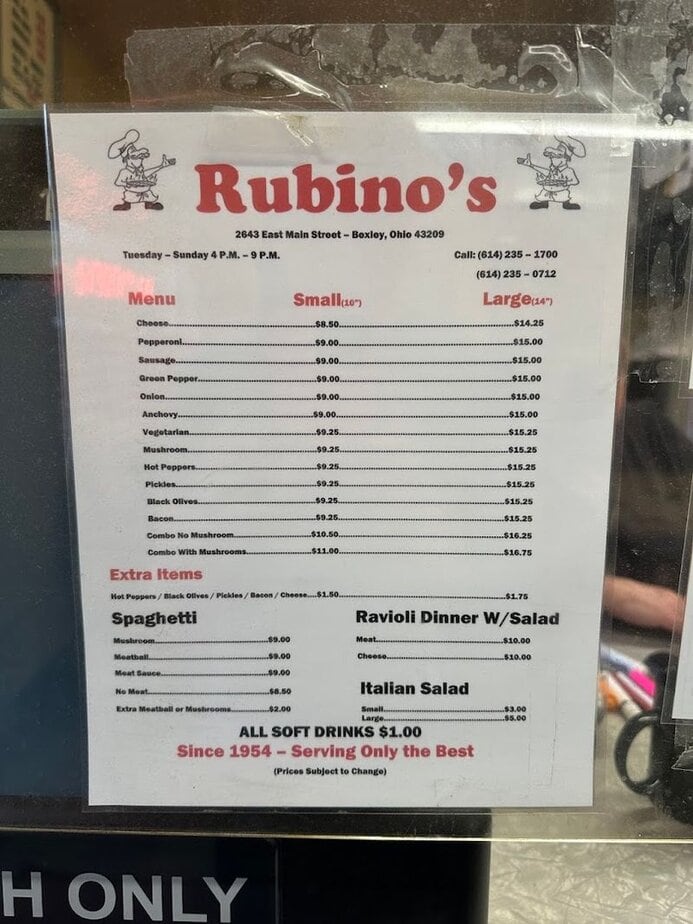 Rubino's
2643 East Main Street – Bexley, Ohio 43209
Tuesday – Sunday 4 P.M. – 9 P.M. Call: (614) 235 – 1700
(614) 235 – 0712
Menu Small(10") Large(14")
Cheese....................$8.50....................$14.25
Pepperoni....................$9.00....................$15.00
Sausage....................$9.00....................$15.00
Green Pepper....................$9.00....................$15.00
Onion....................$9.00....................$15.00
Anchovy....................$9.00....................$15.00
Vegetarian....................$9.25....................$15.25
Mushroom....................$9.25....................$15.25
Hot Peppers....................$9.25....................$15.25
Pickles....................$9.25....................$15.25
Black Olives....................$9.25....................$15.25
Bacon....................$9.25....................$15.25
Combo No Mushroom....................$10.50....................$16.25
Combo With Mushrooms....................$11.00....................$16.75
Extra Items
Hot Peppers / Black Olives / Pickles / Bacon / Cheese....$1.50....................$1.75
Spaghetti
Mushroom....................$9.00
Meatball....................$9.00
Meat Sauce....................$9.00
No Meat....................$8.50
Extra Meatball or Mushrooms....................$2.00
Ravioli Dinner W/Salad
Meat....................$10.00
Cheese....................$10.00
Italian Salad
Small....................$3.00
Large....................$5.00
ALL SOFT DRINKS $1.00
Since 1954 – Serving Only the Best
(Prices Subject to Change)
H ONLY